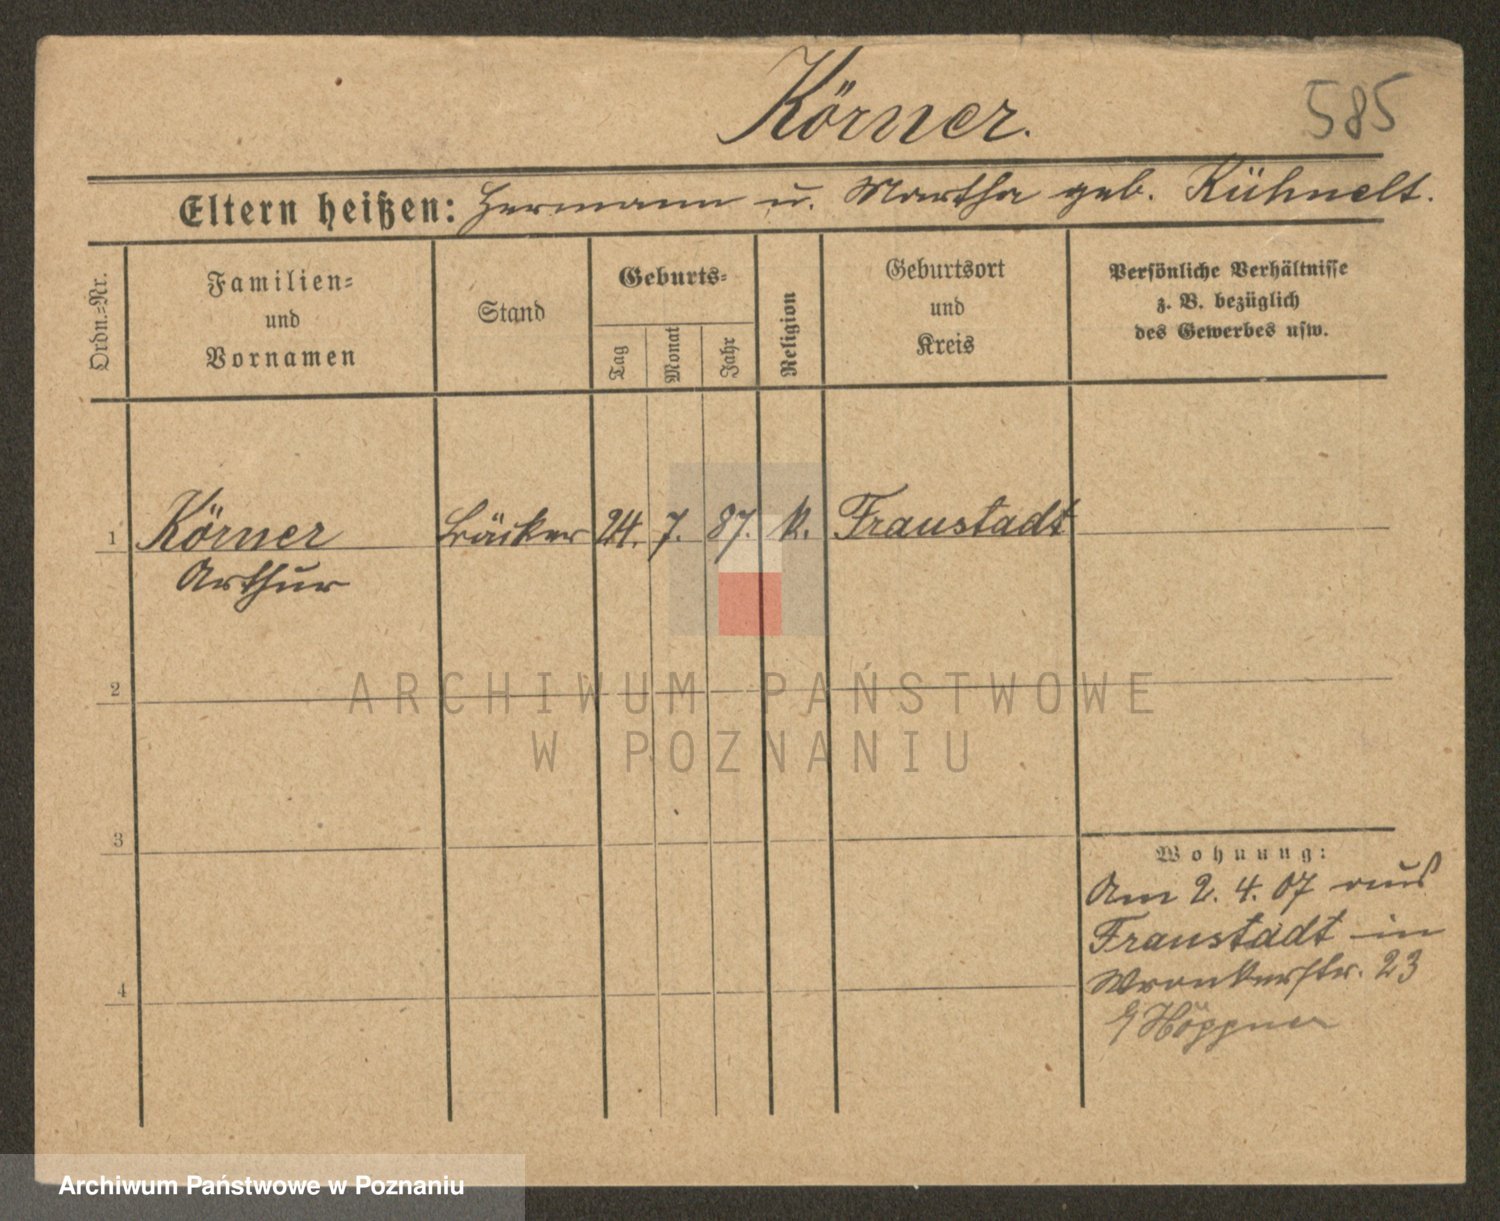 Körner.
585
Eltern heißen: Hermann u. Martha geb. Kühnelt.
Ordn.=Nr.
Familien=
und
Vornamen
Stand
Geburts=
Tag
Monat
Jahr
Religion
Geburtsort
und
Kreis
Persönliche Verhältnisse
z. B. bezüglich
des Gewerbes usw.
1 Körner Bäcker 24. 7. 87. k. Fraustadt
Arthur
2
ARCHIWUM PAŃSTWOWE
W POZNANIU
3
Wohnung:
Am 2. 4. 07 aus
Fraustadt in
4
Wronkerstr. 23
Höppner
Archiwum Państwowe w Poznaniu